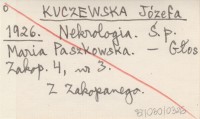 KUCZEWSKA Józefa
1926. Nekrologia. Ś.p.
Maria Paszkowska. — Głos
Zakop. 4, nr 3.
Z Zakopanego.